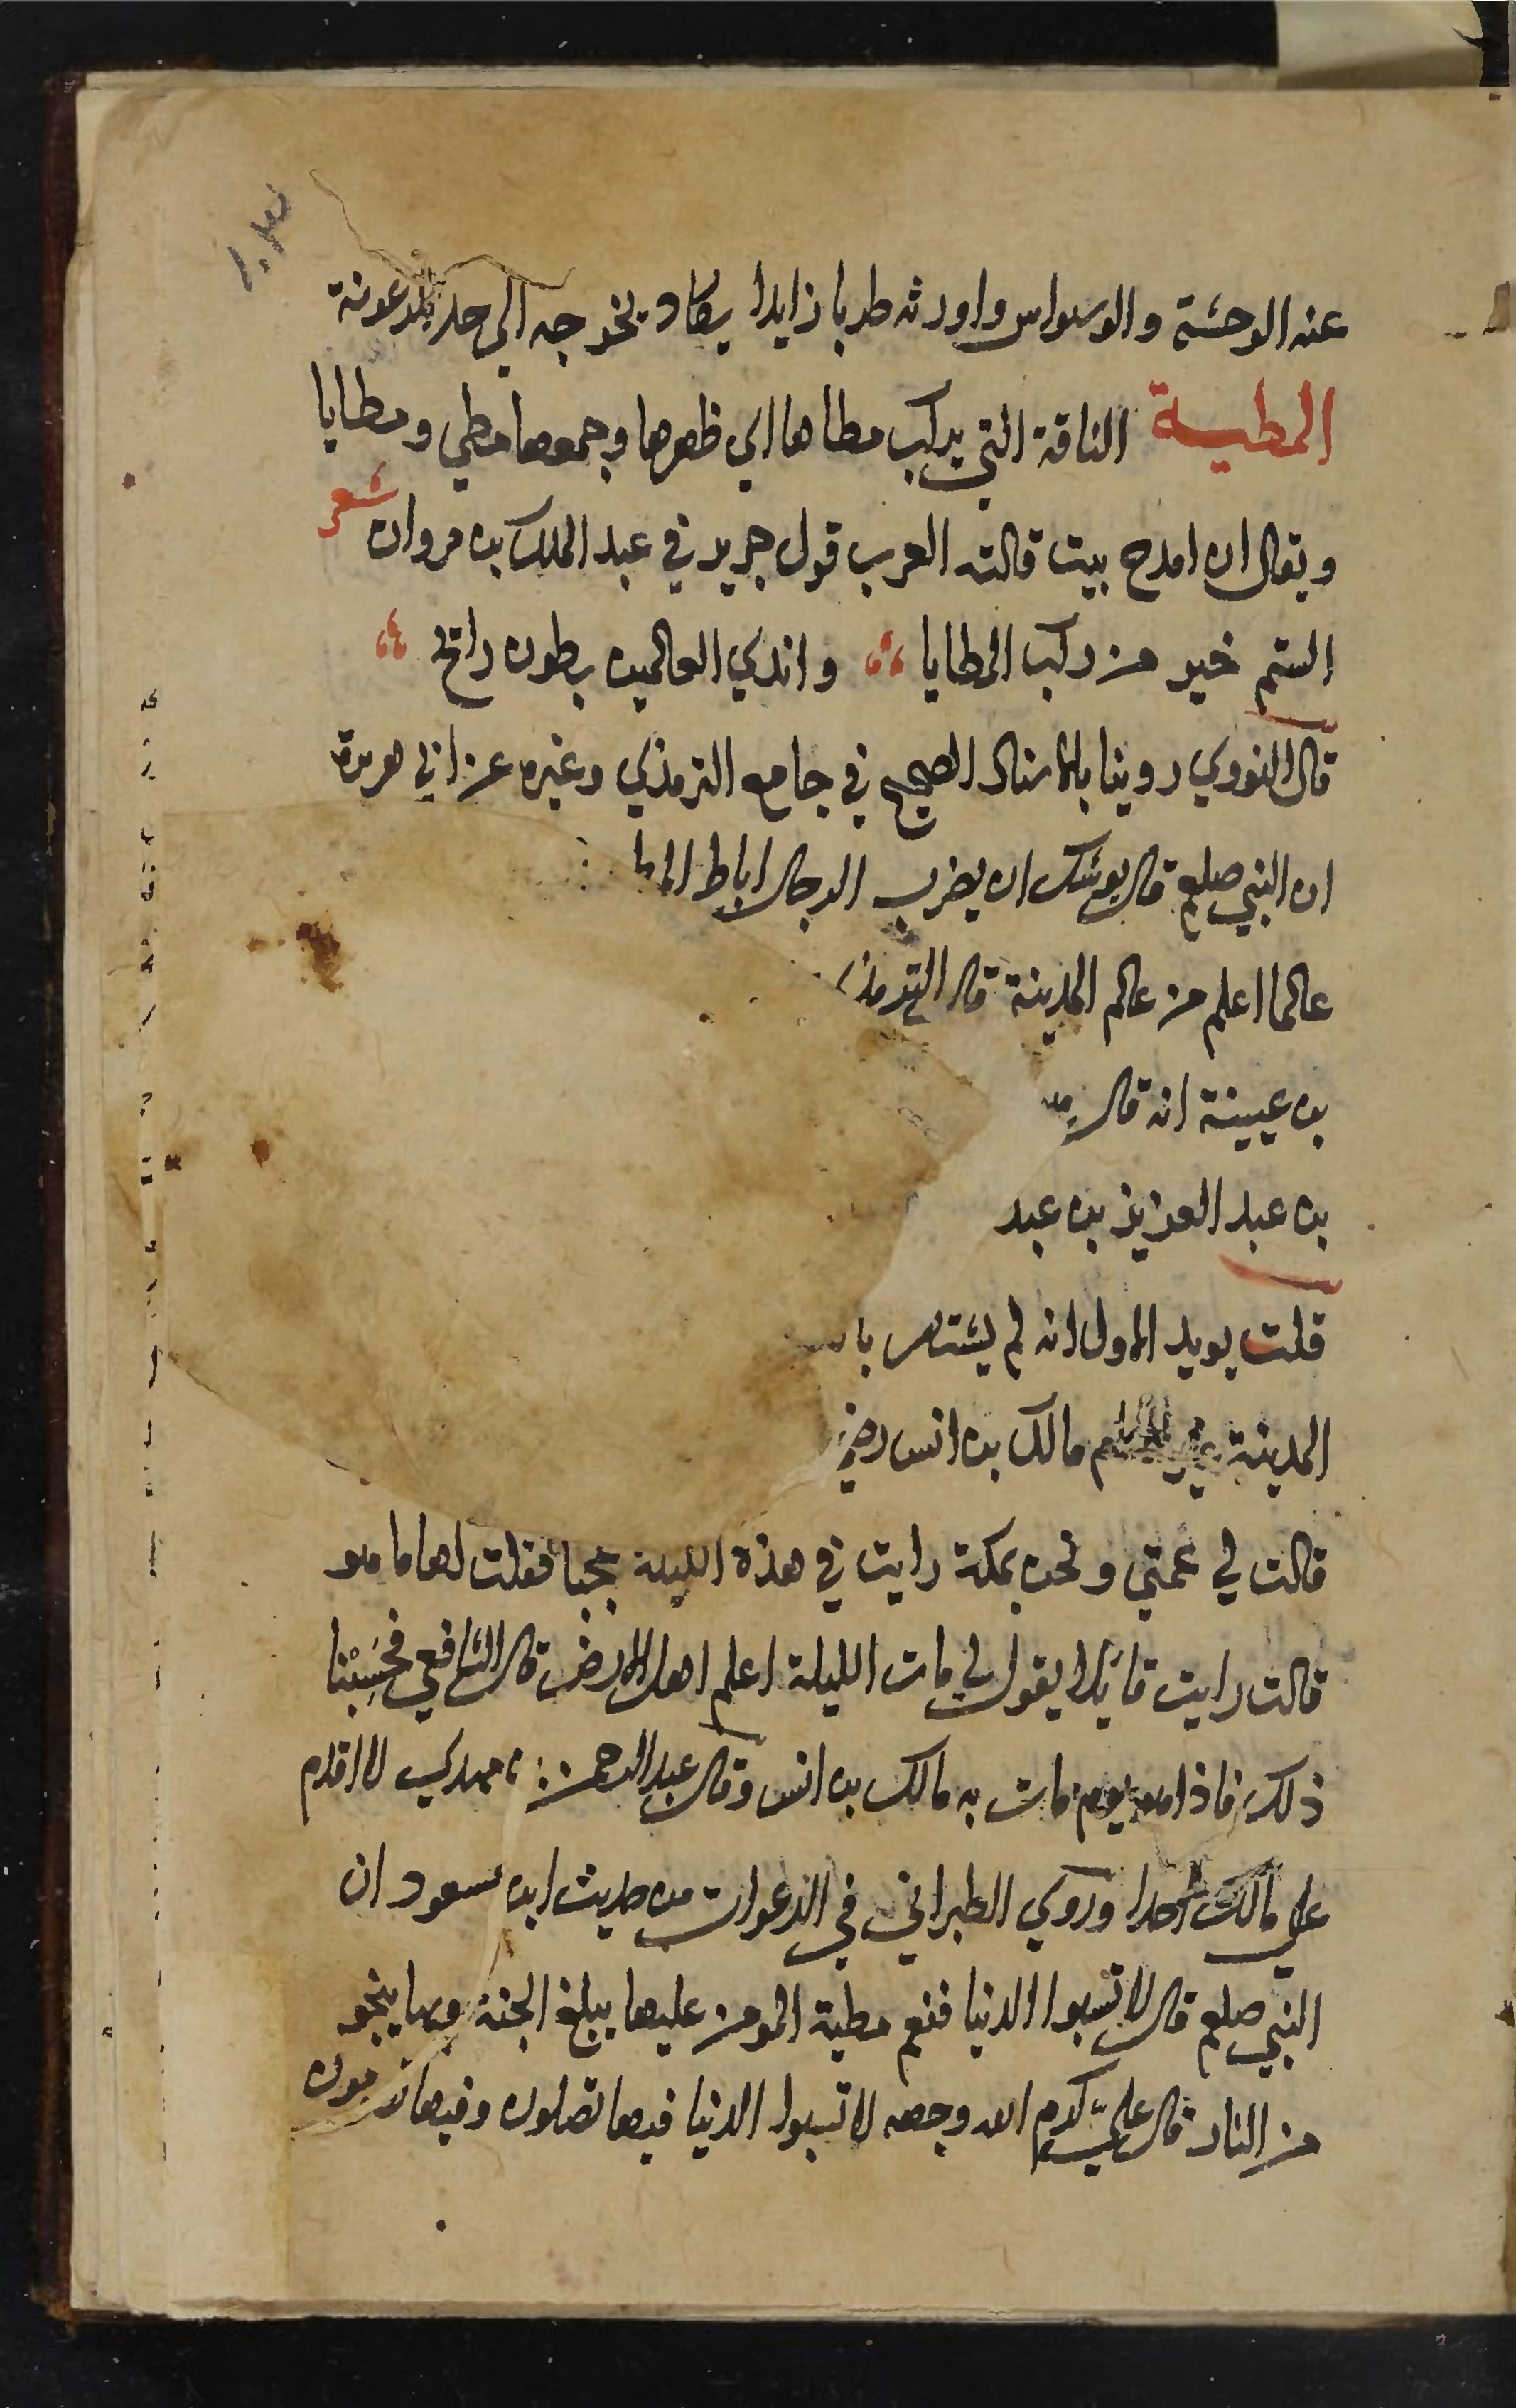 عنه الوحشة والوسواس واورثه طربا زايدا يكاد يخرجه الي حد الرعونة
المطية الناقة التي يركب مطاها اي ظهرها وجمعها مطي ومطايا
ويقال ان امدح بيت قالته العرب قول جرير في عبد الملك بن مروان شعر
الستم خير من ركب المطايا واندي العالمين بطون راح
قال النووي روينا بالاسناد الصحيح في جامع الترمذي وغيره عن ابي هريرة
ان النبي صلعم قال يوشك ان يضرب الرجال اباط
عالما اعلم من عالم المدينة قال الترمذي
بن عيينة انه قال
بن عبد العزيز بن عبد
قلت يويد الاول انه لم يشتهر
المدينة مالك بن انس رضي
قالت لي عمتي ونحن بمكة رايت في هذه الليلة عجبا فقلت لها ما هو
قالت رايت قايلا يقول لي مات الليلة اعلم اهل الارض قال الشافعي فحسبنا
ذلك فاذا هو يوم مات به مالك بن انس وقال عبد الرحمن مهدي لا اقدم
علي مالك احدا وروي الطبراني في الدعوات من حديث ابن مسعود ان
النبي صلعم قال لا تسبوا الدنيا فنعم مطية المومن عليها يبلغ الجنة وبها ينجو
من النار قال علي كرم الله وجهه لا تسبوا الدنيا فيها تصلون وفيها